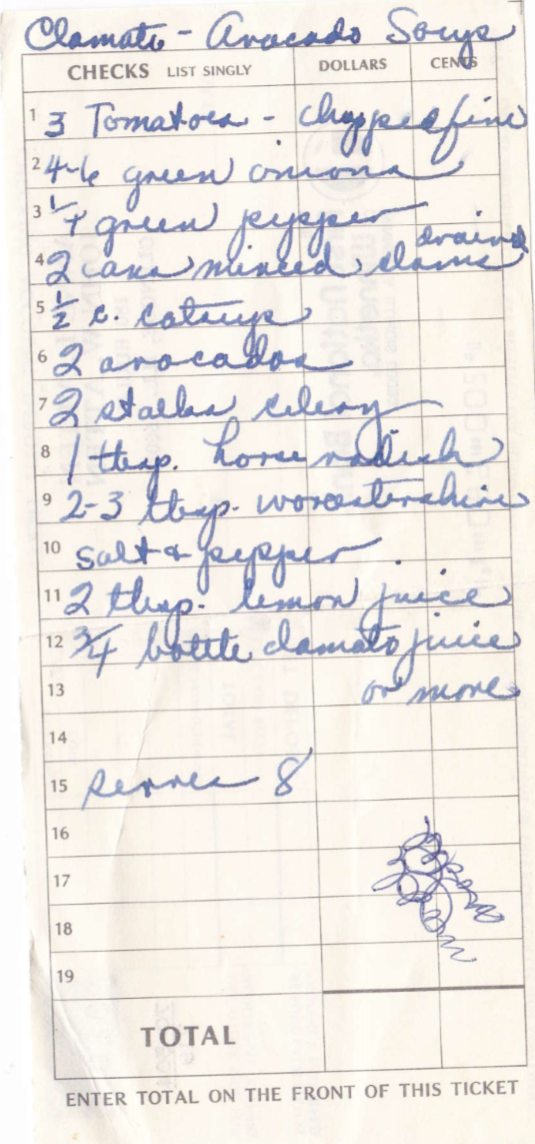 Clamato - Avocado Soup
CHECKS LIST SINGLY DOLLARS CENTS
1 3 Tomatoes - chopped fine
2 4-6 green onions
3 1/4 green pepper
drained
4 2 cans minced clams
5 1/2 c. catsup
6 2 avocados
7 2 stalks celery
8 1 tbsp. horse radish
9 2-3 tbsp. worcestershire
10 salt & pepper
11 2 tbsp. lemon juice
12 3/4 bottle clamato juice
13 or more
14
15 serves 8
16
17
18
19
TOTAL
ENTER TOTAL ON THE FRONT OF THIS TICKET